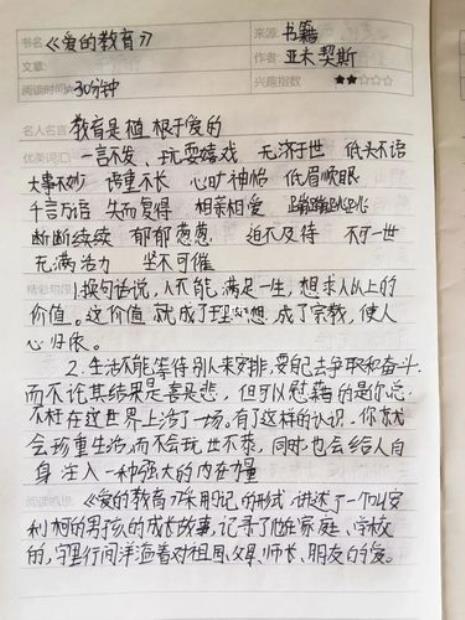 书名 《爱的教育》 来源 书籍
文章 作者 亚米契斯
阅读时间 30分钟 兴趣指数 ★★☆☆☆
名人名言 教育是植根于爱的
优美词汇 一言不发、玩耍嬉戏 无济于世 低头不语
大事不妙 语重不长 心旷神怡 低眉顺眼
千言万语 失而复得 相亲相爱 蹦蹦跳跳
断断续续 郁郁葱葱 迫不及待 不可一世
充满活力 坚不可催
1.换句话说，人不能满足一生，想求人以上的
价值。这价值就成了理想，成了宗教，使人
心归依。
2.生活不能等待别人来安排，要自己去争取和奋斗.
而不论其结果是喜是悲，但可以慰藉的是你总
不枉在这世界上活了一场。有了这样的认识，你就
会珍重生活，而不会玩世不恭，同时也会给人自
身注入一种强大的内在力量
《爱的教育》采用日记的形式讲述了一个叫安
利柯的男孩的成长故事，记录了他在家庭、学校
的，字里行间洋溢着对祖国、父母、师长、朋友的爱。